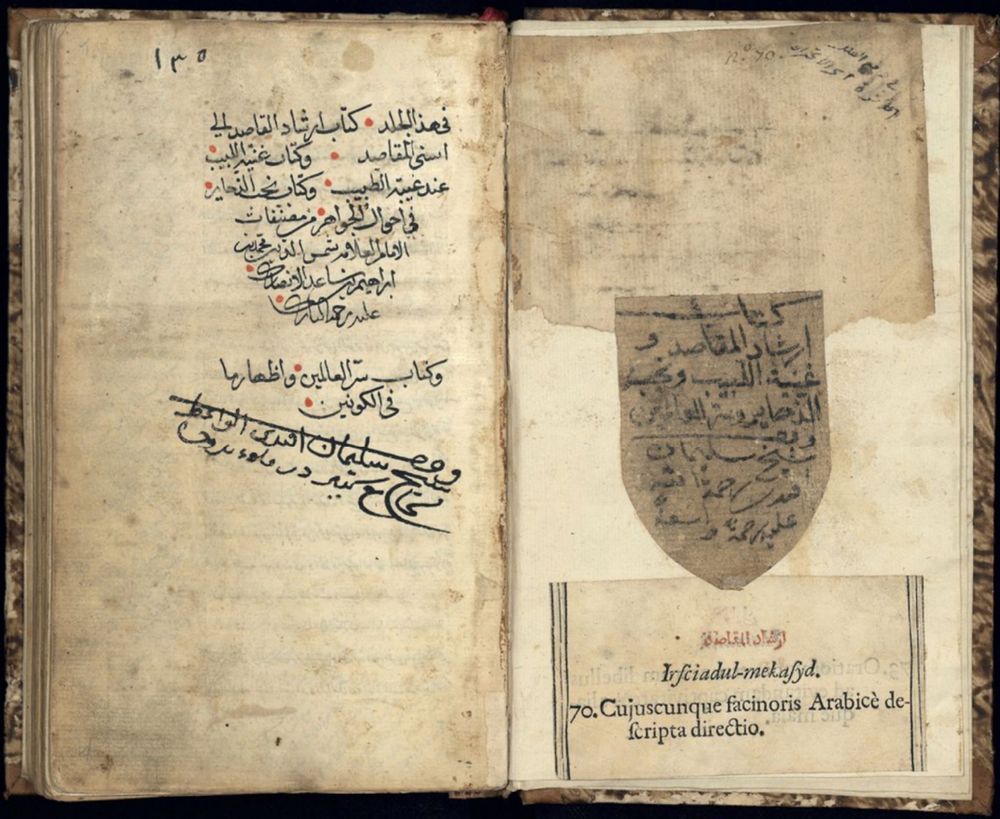 ١٣٥
في هذا الجلد كتاب ارشاد القاصد الى
اسنى المقاصد وكتاب غنية اللبيب
عند غيبة الطبيب وكتاب نخب الذخاير
في احوال الجواهر من مصنفات
الامام العلامه شمس الدين محمد بن
ابراهيم بن ساعد الانصاري
عليه رحمة الباري
وكتاب سر العالمين واظهارها
في الكونين
وقف
شيخ سليمان افندي الواعظ
nº 70.
كتاب
ارشاد المقاصد و
غنية اللبيب ونخب
الذخاير وسر العالمين
وقف
شيخ سليمان
افندي رحمة الله
عليه رحمة واسعة
ارشاد المقاصد
Irſciadul-mekaſyd.
70. Cujuscunque facinoris Arabicè de-
ſcripta directio.